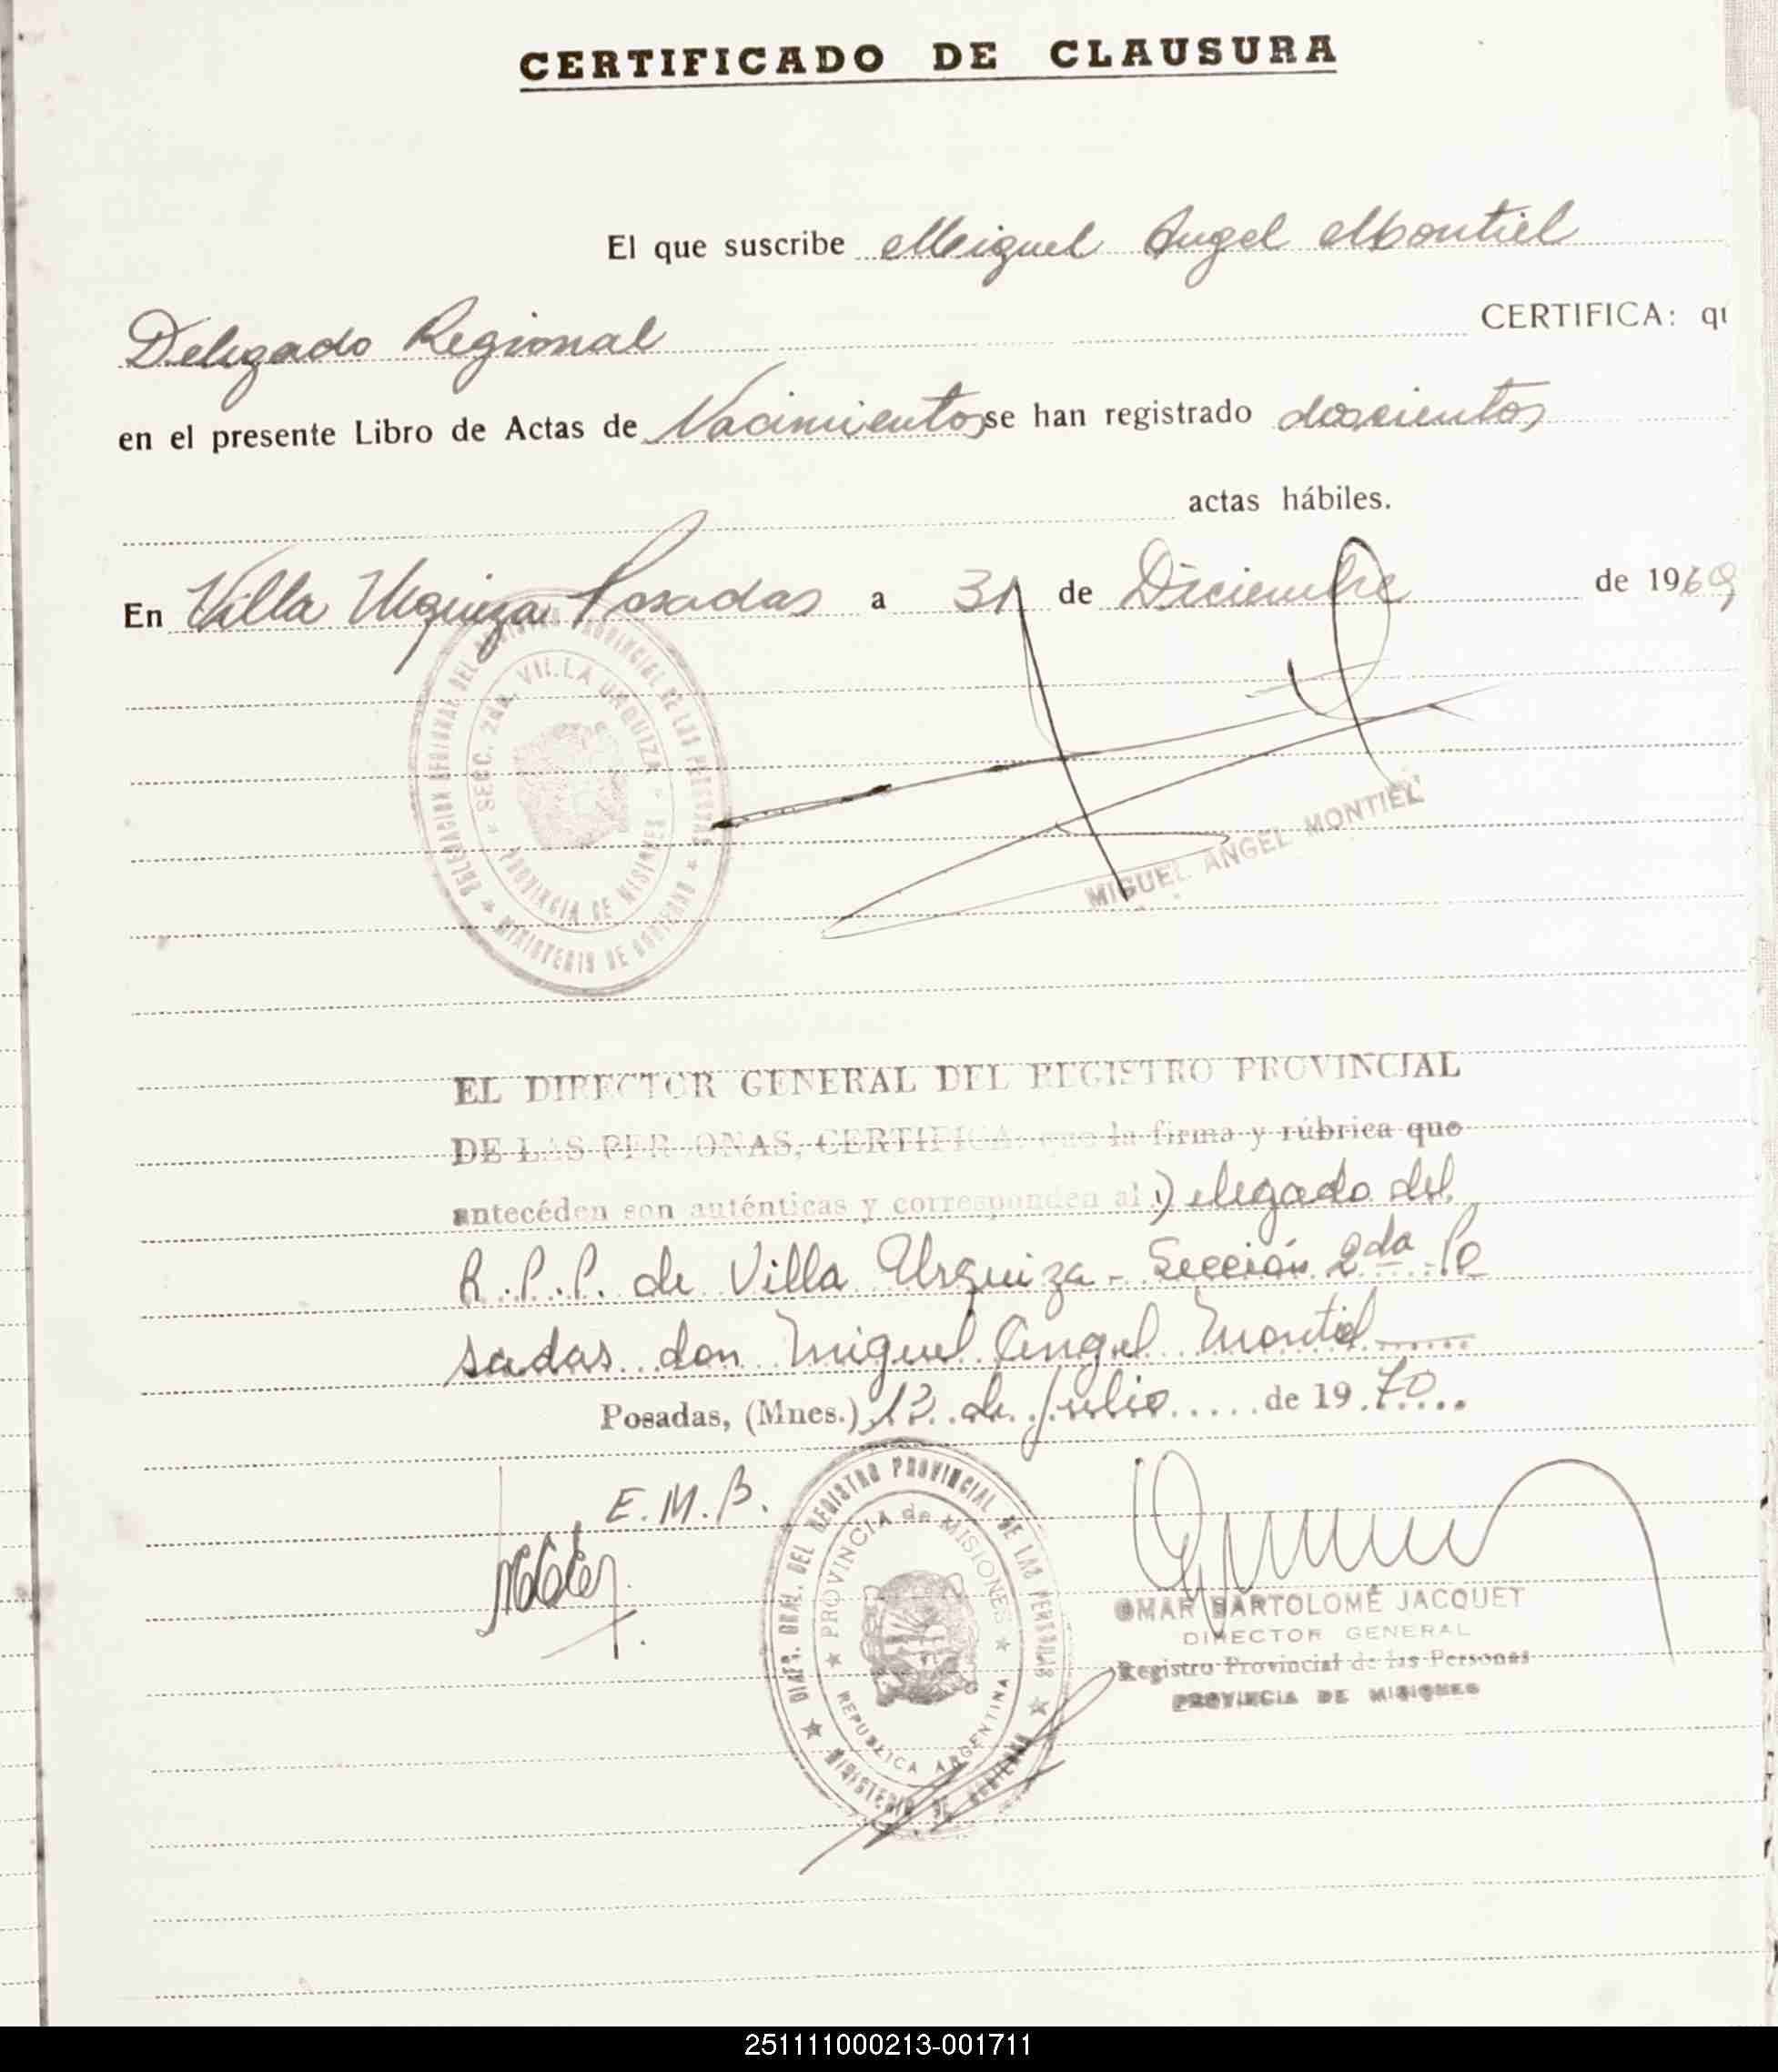 CERTIFICADO DE CLAUSURA
El que suscribe Miguel Angel Montiel
Delegado Regional CERTIFICA: qu
en el presente Libro de Actas de Nacimientos se han registrado doscientos
actas hábiles.
En Villa Urquiza Posadas a 31 de Diciembre de 1969
DELEGACION REGIONAL DEL REGISTRO PROVINCIAL DE LAS PERSONAS
MINISTERIO DE GOBIERNO
SECC. 2da. VILLA URQUIZA
PROVINCIA DE MISIONES
MIGUEL ANGEL MONTIEL
EL DIRECTOR GENERAL DEL REGISTRO PROVINCIAL
DE LAS PERSONAS, CERTIFICA: que la firma y rúbrica que
antecéden son auténticas y corresponden al Delegado del
R.P.P. de Villa Urquiza - Sección 2da Po
sadas don Miguel Angel Montiel
Posadas, (Mnes.) 13 de Julio de 1970
E.M.B.
DIREC. GRAL. DEL REGISTRO PROVINCIAL DE LAS PERSONAS
MINISTERIO DE GOBIERNO
PROVINCIA de MISIONES
REPUBLICA ARGENTINA
OMAR BARTOLOMÉ JACQUET
DIRECTOR GENERAL
Registro Provincial de las Personas
PROVINCIA DE MISIONES
251111000213-001711